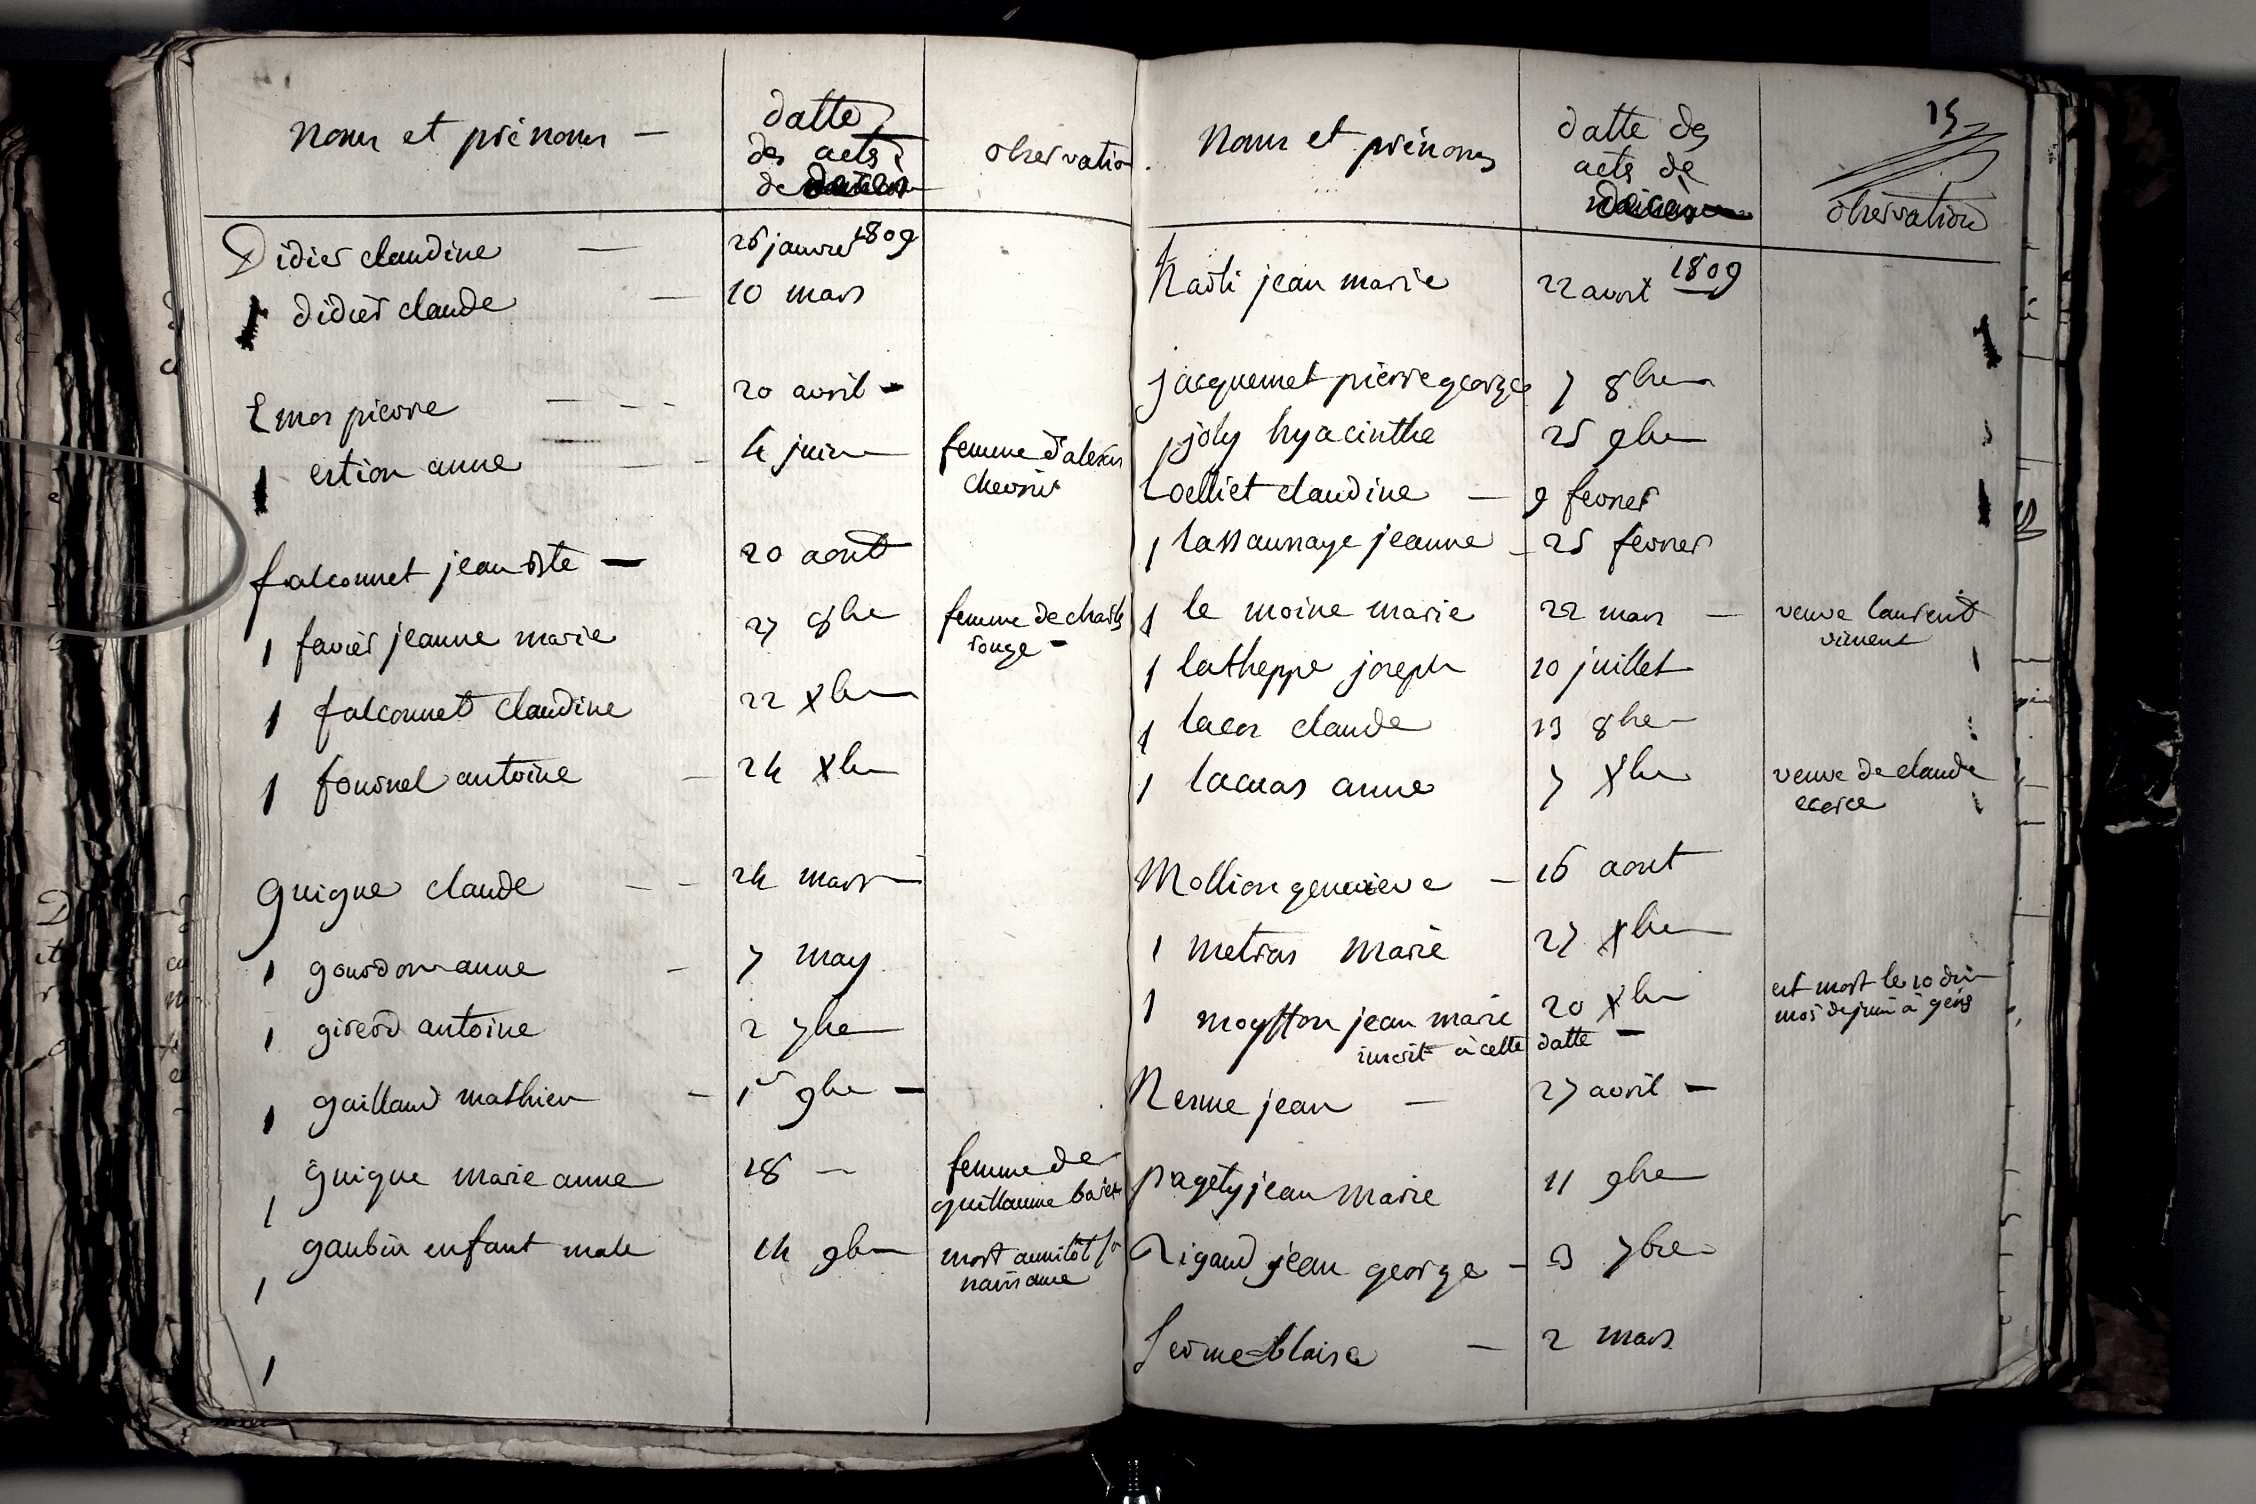 noms et prénoms —
datte
des acts
de
observation
Didier claudine — 26 janvier 1809
1 didier claude — 10 mars
Emor pierre — - - 20 avril -
1 ertion anne — - 4 juin femme d'alexis
chevrier
falconnet jean bte — 20 aout
1 favier jeanne marie 27 8bre femme de charles
rouge -
1 falconnet claudine 22 Xbre
1 fournel antoine — 24 Xbre
guigue claude - - 24 mars
1 gourdon anne - 7 may
1 girerd antoine 2 7bre
1 gaillard mathieu - 1er 9bre -
1 guigue marie anne 18 — femme de
guillaume
1 gaubin enfant male 14 9bre mort aussitôt sa
naissance
1
15
noms et prénoms
datte des
acts de
observation
jean marie 22 avril 1809
jacquemet pierre george 7 8bre
1 joly hyacinthe 25 9bre
claudine — 9 fevrier
1 lassausaye jeanne - 25 fevrier
1 le moine marie 22 mars — veuve laurent
viment
1 latheppe joseph 10 juillet
1 lacor claude 13 8bre
1 lacras anne 7 Xbre veuve de claude
Mollion genevieve - 16 aout
1 metras marie 27 Xbre
1 moytton jean marie 20 Xbre est mort le 10 du
mois de juin à
inscrit à cette datte —
Nesme jean — 27 avril -
pagety jean marie 11 9bre
Rigaud jean george - 13 7bre
blaise — 2 mars